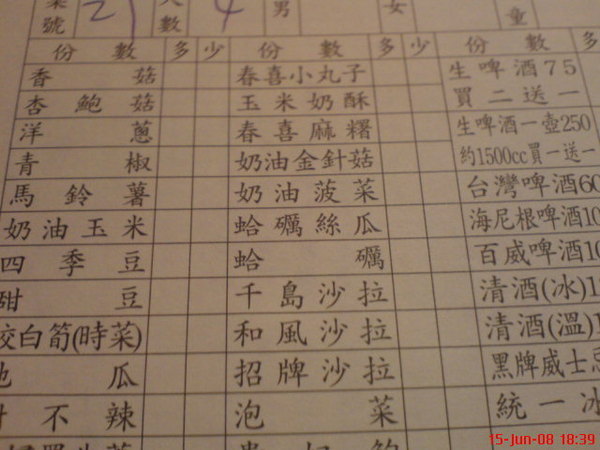 號 21 數 4 男 女 童
份 數 多 少 份 數 多 少 份 數 多
香 菇 春喜小丸子 生啤酒75
杏 鮑 菇 玉米奶酥 買二送一
洋 蔥 春喜麻糬 生啤酒一壺250
青 椒 奶油金針菇 約1500cc買一送一
馬 鈴 薯 奶油菠菜 台灣啤酒60
奶油玉米 蛤蠣絲瓜 海尼根啤酒10
四 季 豆 蛤 蠣 百威啤酒10
甜 豆 千島沙拉 清酒(冰)1
白筍(時菜) 和風沙拉 清酒(溫)1
瓜 招牌沙拉 黑牌威士忌
不 辣 泡 菜 統一冰
15-Jun-08 18:39